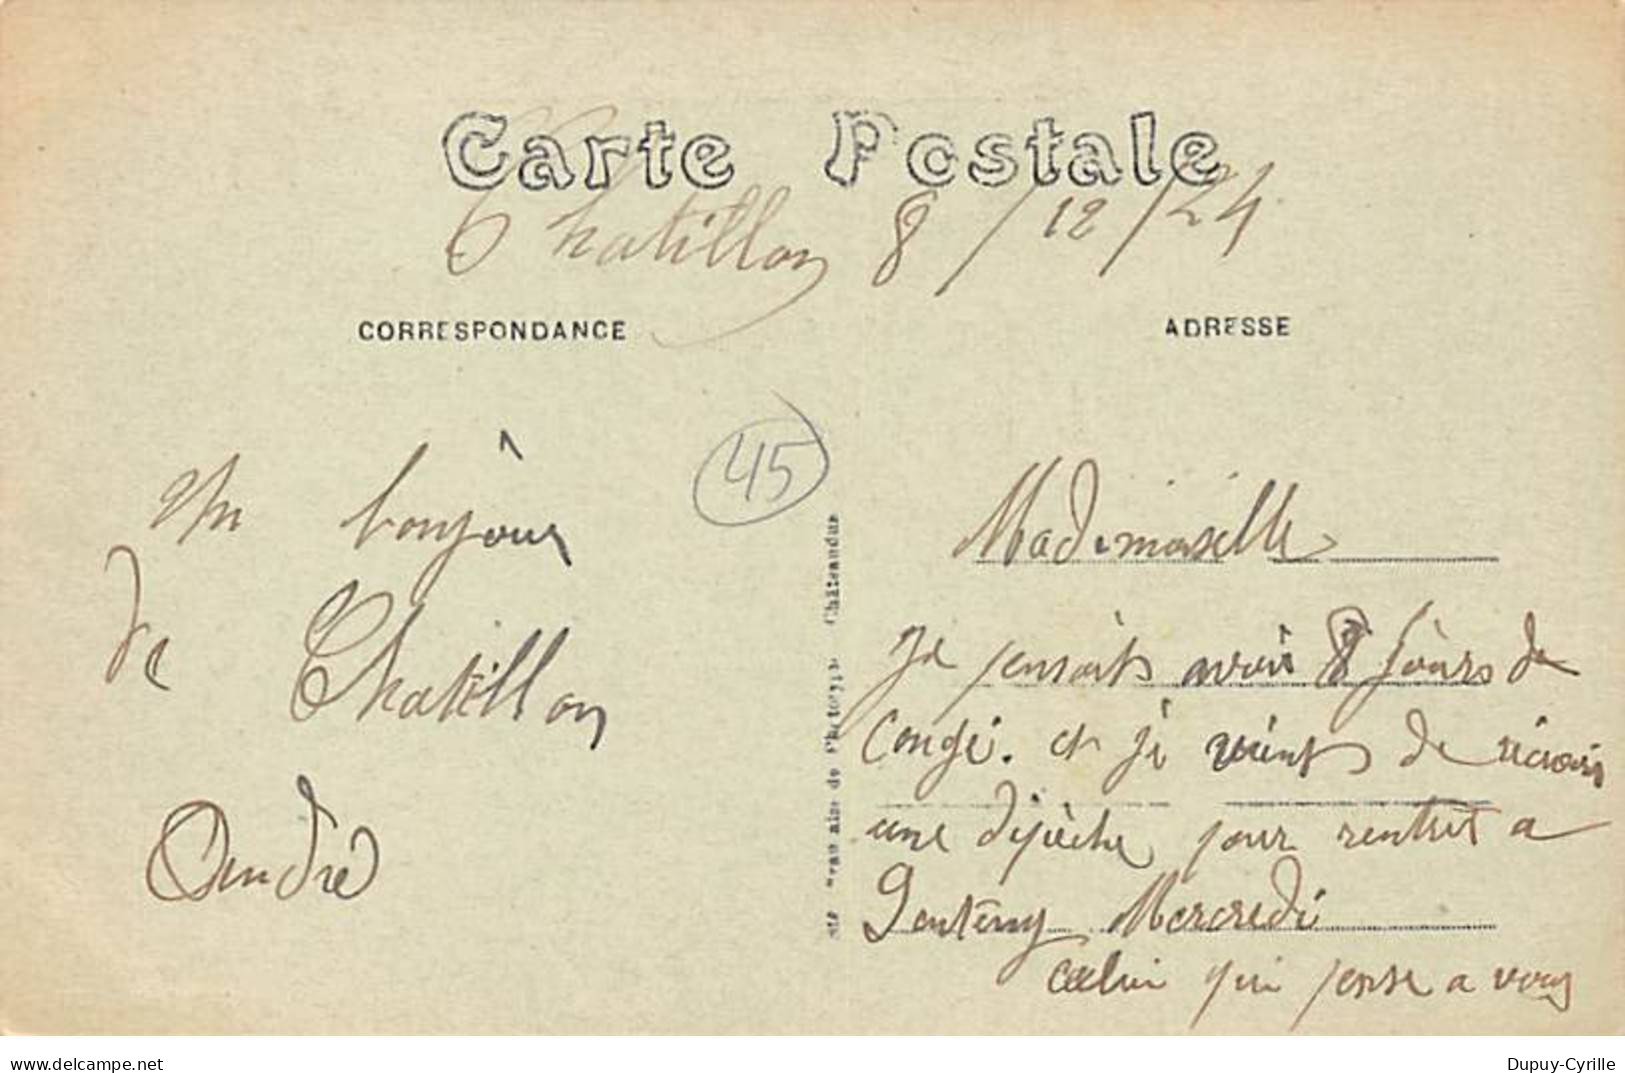 Carte Postale
Chatillon 8/12/24
CORRESPONDANCE
ADRESSE
45
Un bonjour
de Chatillon
André
Châteaudun
Mademoiselle
Je pensait avoir 8 jours de
Congé. et je vient de recevoir
une dépèche pour rentret a
Mercredi
celui qui pense a vous
www.delcampe.net
Dupuy-Cyrille